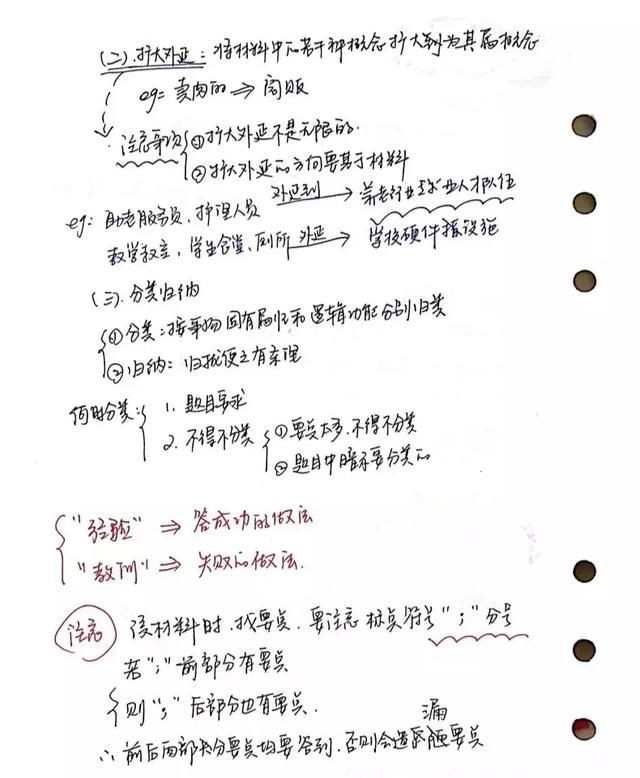 (二).扩大外延：将材料中的若干种概念扩大到为其属概念
eg= 卖肉的 ⇒ 商贩
注意事项 ①扩大外延不是无限的.
②扩大外延的方向要基于材料
eg: 助老服务员、护理人员 外延到 养老行业专业人才队伍
教学教室，学生食堂、厕所 外延 学校硬件 设施
(三).分类归纳
①分类：按事物固有属性和逻辑功能分别归类
②归纳：归拢使之有条理
何时分类： 1. 题目要求
2. 不得不分类 ①要点太多.不得不分类
②题目中暗示要分类的
"经验" ⇒ 答成功的做法
"教训" ⇒ 失败的做法.
注意 读材料时.找要点.要注意标点符号"；"分号
若"；"前部分有要点
则"；"后部分也有要点.
漏
∴ 前后两部分要点均要答到.否则会遗 要点